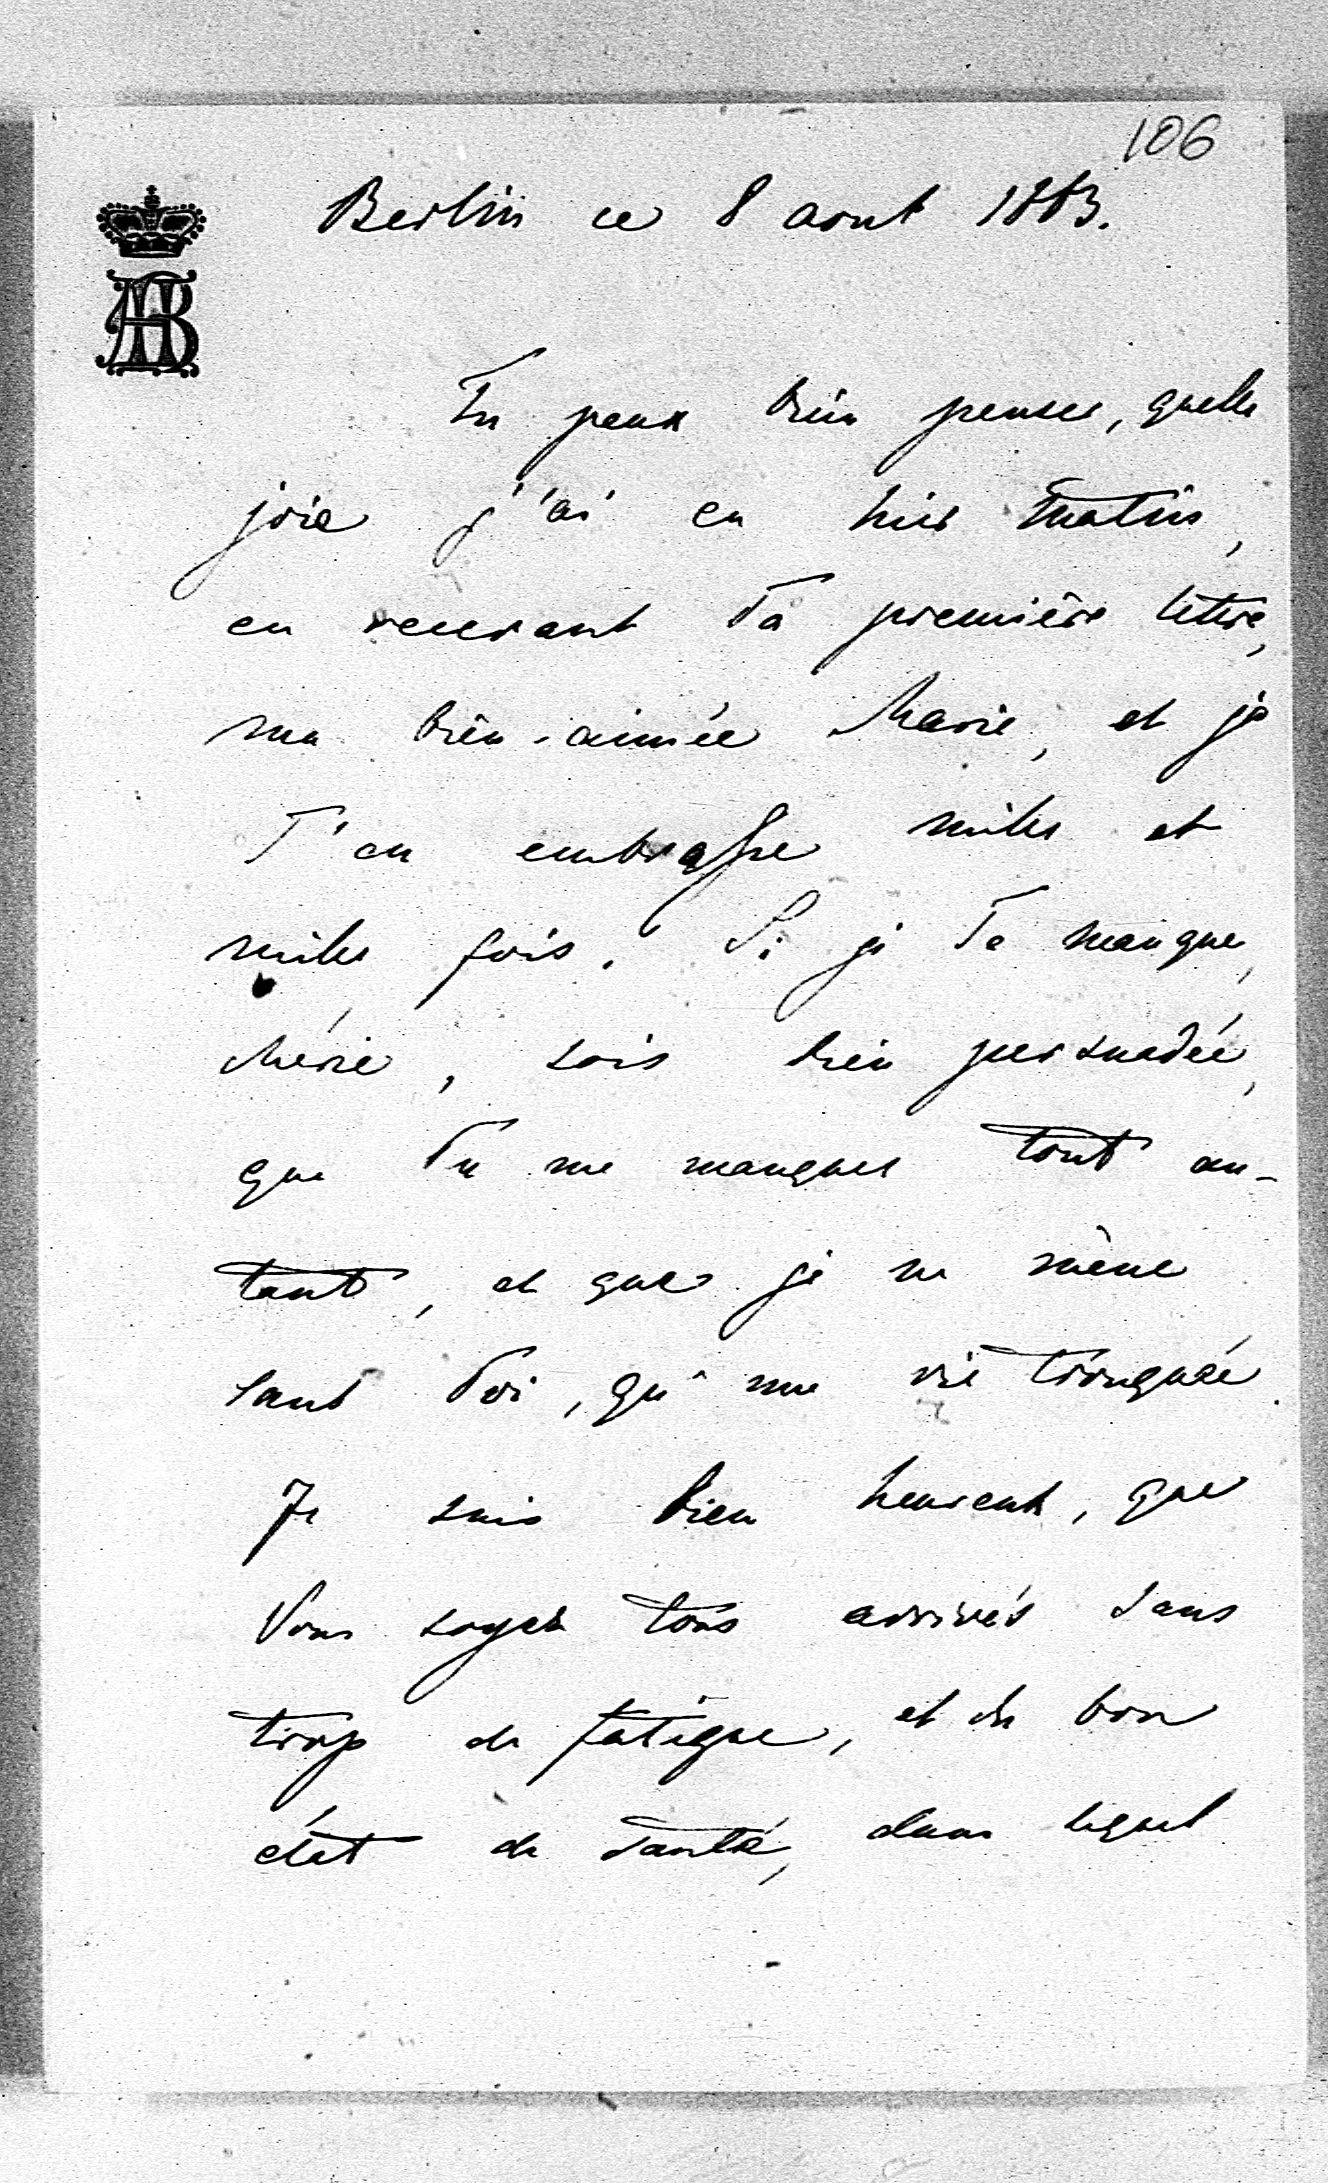 106
Berlin ce 8 aout 1883.
Tu peux bien penser, quelle
joie j'ai eu hier matin,
en recevant Ta première lettre,
ma bien-aimée Marie, et je
T'en embrasse milles et
milles fois. Si je Te manque,
chérie, sois bien persuadée,
que Tu me manques tout au-
tant, et que je ne mène
sans Toi, qu'une vie tronquée.
Je suis bien heureux, que
Vous soyez tous arrivés sans
trop de fatigue, et de bon
état de santé, dans lequel